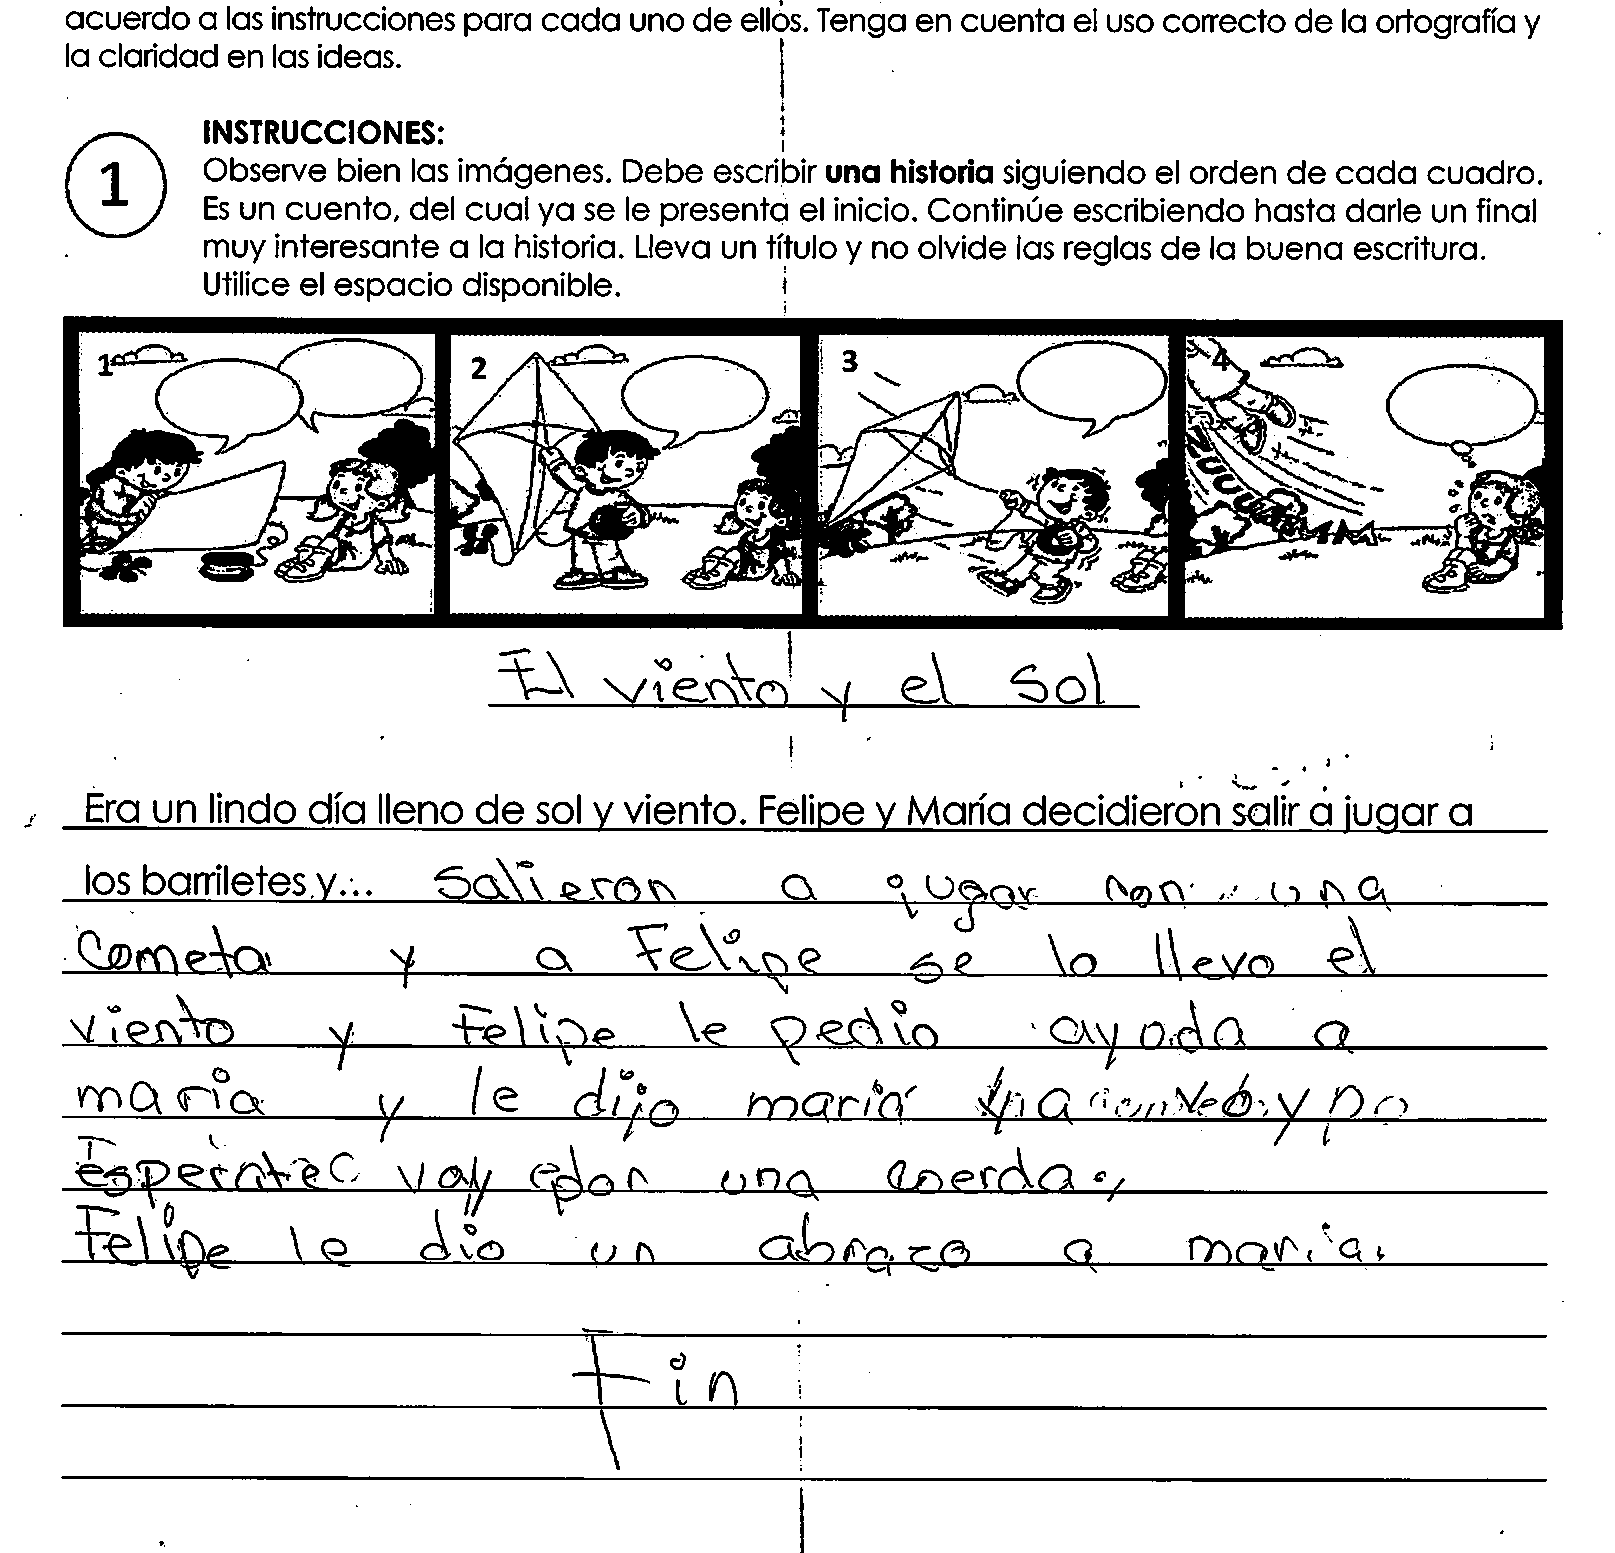 acuerdo a las instrucciones para cada uno de ellos. Tenga en cuenta el uso correcto de la ortografía y
la claridad en las ideas.
INSTRUCCIONES:
1
Observe bien las imágenes. Debe escribir una historia siguiendo el orden de cada cuadro.
Es un cuento, del cual ya se le presenta el inicio. Continúe escribiendo hasta darle un final
muy interesante a la historia. Lleva un título y no olvide las reglas de la buena escritura.
Utilice el espacio disponible.
1 2 3 4
El viento y el Sol
Era un lindo día lleno de sol y viento. Felipe y María decidieron salir a jugar a
los barriletes y... Salieron a jugar con una
Cometa y a Felipe se lo llevo el
viento y Felipe le pedio ayoda a
maria y le dijo maria
voy una coerda
Felipe le dio un abrazo a maria.
Fin